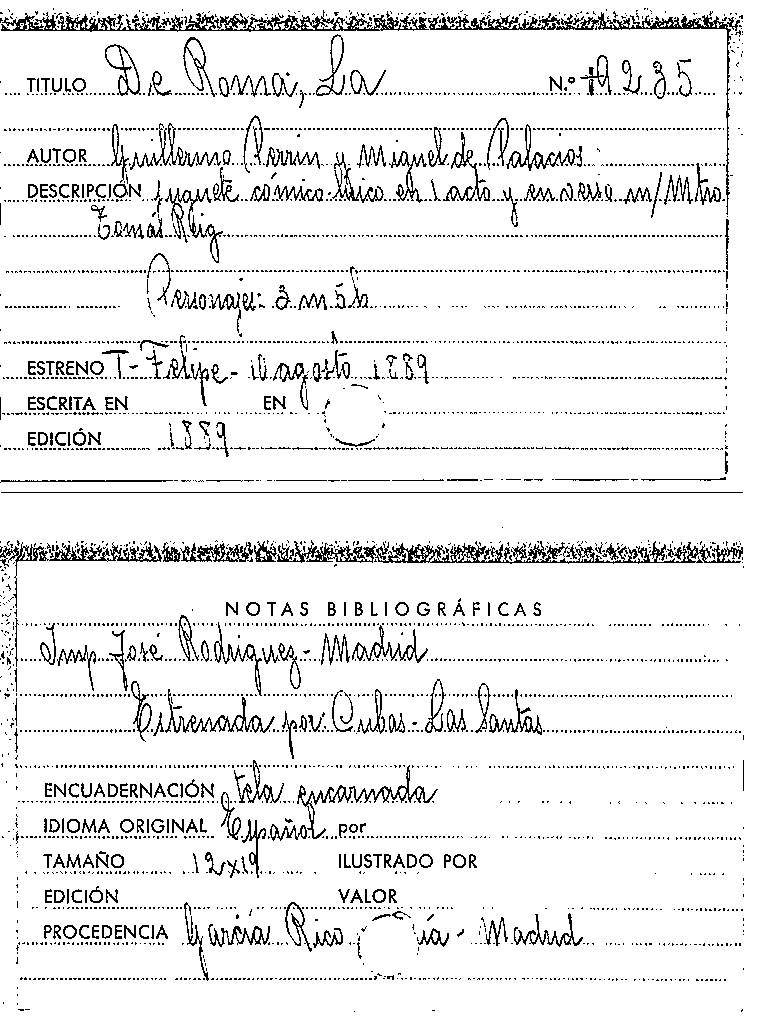 TITULO De Roma, La N.º 19235
AUTOR Guillermo Perrin y Miguel de Palacios
DESCRIPCIÓN juguete cómico-lírico en 1 acto y en verso m/Mtro
Tomás Reig
Personajes: 3 m 5 h
ESTRENO T- Felipe - 10 agosto 1889
ESCRITA EN EN
EDICIÓN 1889
NOTAS BIBLIOGRÁFICAS
Imp José Rodriguez - Madrid
Estrenada por: Cubas - Las Santas
ENCUADERNACIÓN tela encarnada
IDIOMA ORIGINAL Español por
TAMAÑO 12x19 ILUSTRADO POR
EDICIÓN VALOR
PROCEDENCIA García Rico ía - Madrid